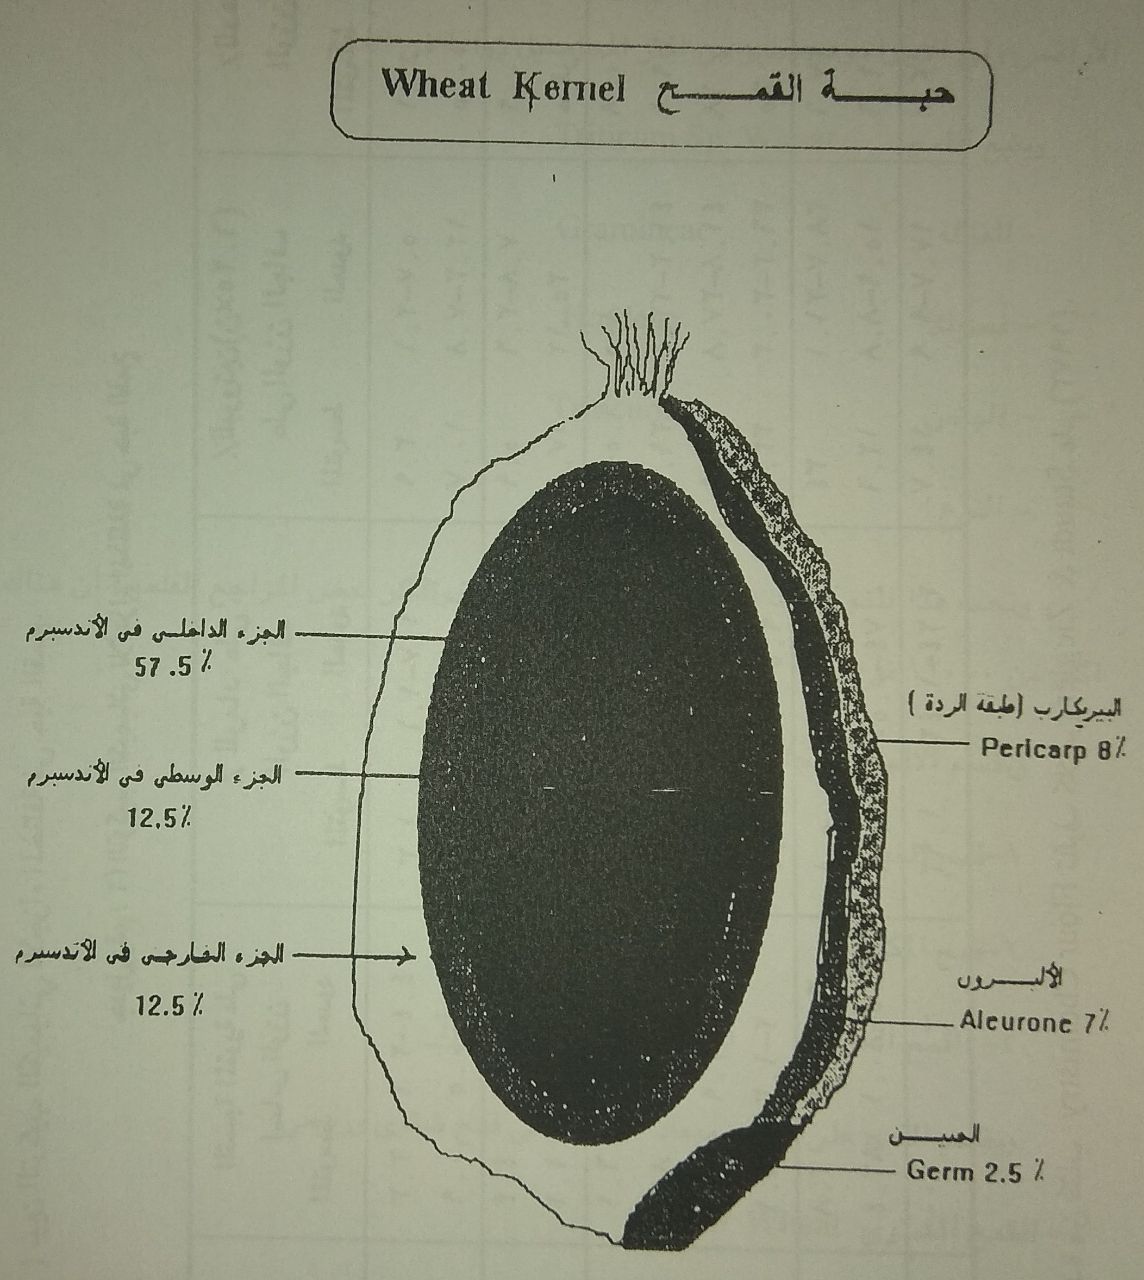 Wheat Kernel حبة القمح
الجزء الداخلى فى الأندسبرم
57.5٪
الجزء الوسطى فى الأندسبرم
12,5٪
الجزء الخارجى فى الأندسبرم
12.5٪
البيريكارب (طبقة الردة)
Pericarp 8٪
الأليرون
Aleurone 7٪
الجنين
Germ 2.5٪